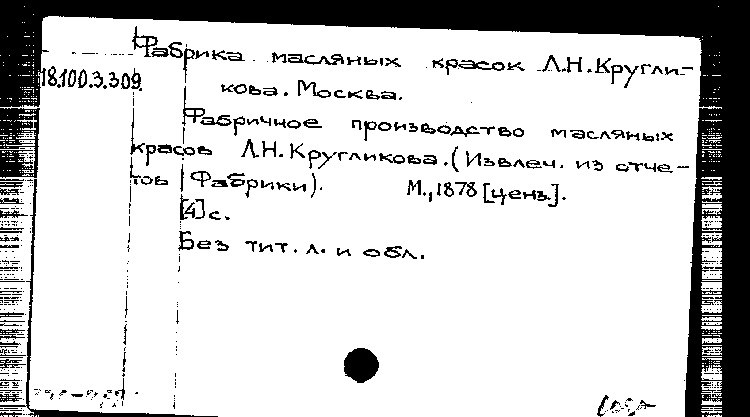 Фабрика масляных красок Л.Н.Кругли-
18.100.3.309.
кова. Москва.
Фабричное производство масляных
красов Л.Н.Кругликова. (Извлеч. из отче-
тов Фабрики). М., 1878 [ценз.].
[4] с.
Без тит. л. и обл.